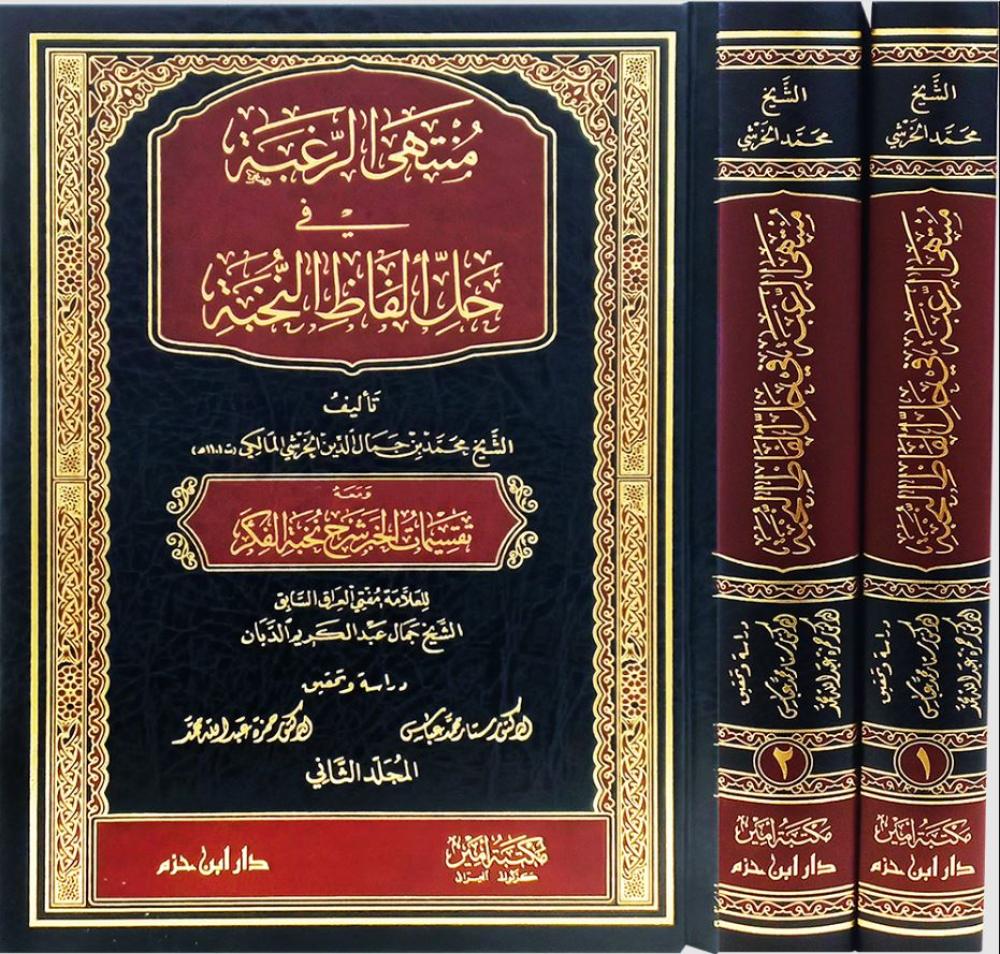 مُنْتَهَى الرَّغْبَةِ
فِي
حَلِّ أَلْفَاظِ النُّخْبَةِ
تَأليفُ
الشَّيْخِ مُحَمَّد بْنِ جَمَال الدِّين الخَرَشِي المَالِكِي (ت ١١٠١هـ)
وَمَعَهُ
تَقْسِيمَاتُ الخَبَر شَرْحُ نُخْبَةِ الفِكَرِ
للعَلَّامَة مُفْتِي العِرَاق السَّابِق
الشَّيْخ جَمَال عَبْد الكَرِيم الدَّبَان
دراسة وتحقيق
الدكتور ستار محمد عباس
الدكتور حمزة عبد الله محمد
المُجَلَّد الثَّانِي
مكتبة أمير
كركوك العراق
دار ابن حزم
الشَّيْخ
مُحَمَّد الخَرَشِي
مُنْتَهَى الرَّغْبَةِ فِي حَلِّ أَلْفَاظِ النُّخْبَةِ
دراسة وتحقيق
الدكتور ستار محمد عباس
الدكتور حمزة عبد الله محمد
٢
مكتبة أمير
دار ابن حزم
الشَّيْخ
مُحَمَّد الخَرَشِي
مُنْتَهَى الرَّغْبَةِ فِي حَلِّ أَلْفَاظِ النُّخْبَةِ
دراسة وتحقيق
الدكتور ستار محمد عباس
الدكتور حمزة عبد الله محمد
١
مكتبة أمير
دار ابن حزم